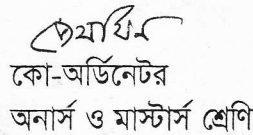 কো-অর্ডিনেটর
অনার্স ও মাস্টার্স শ্রেণি